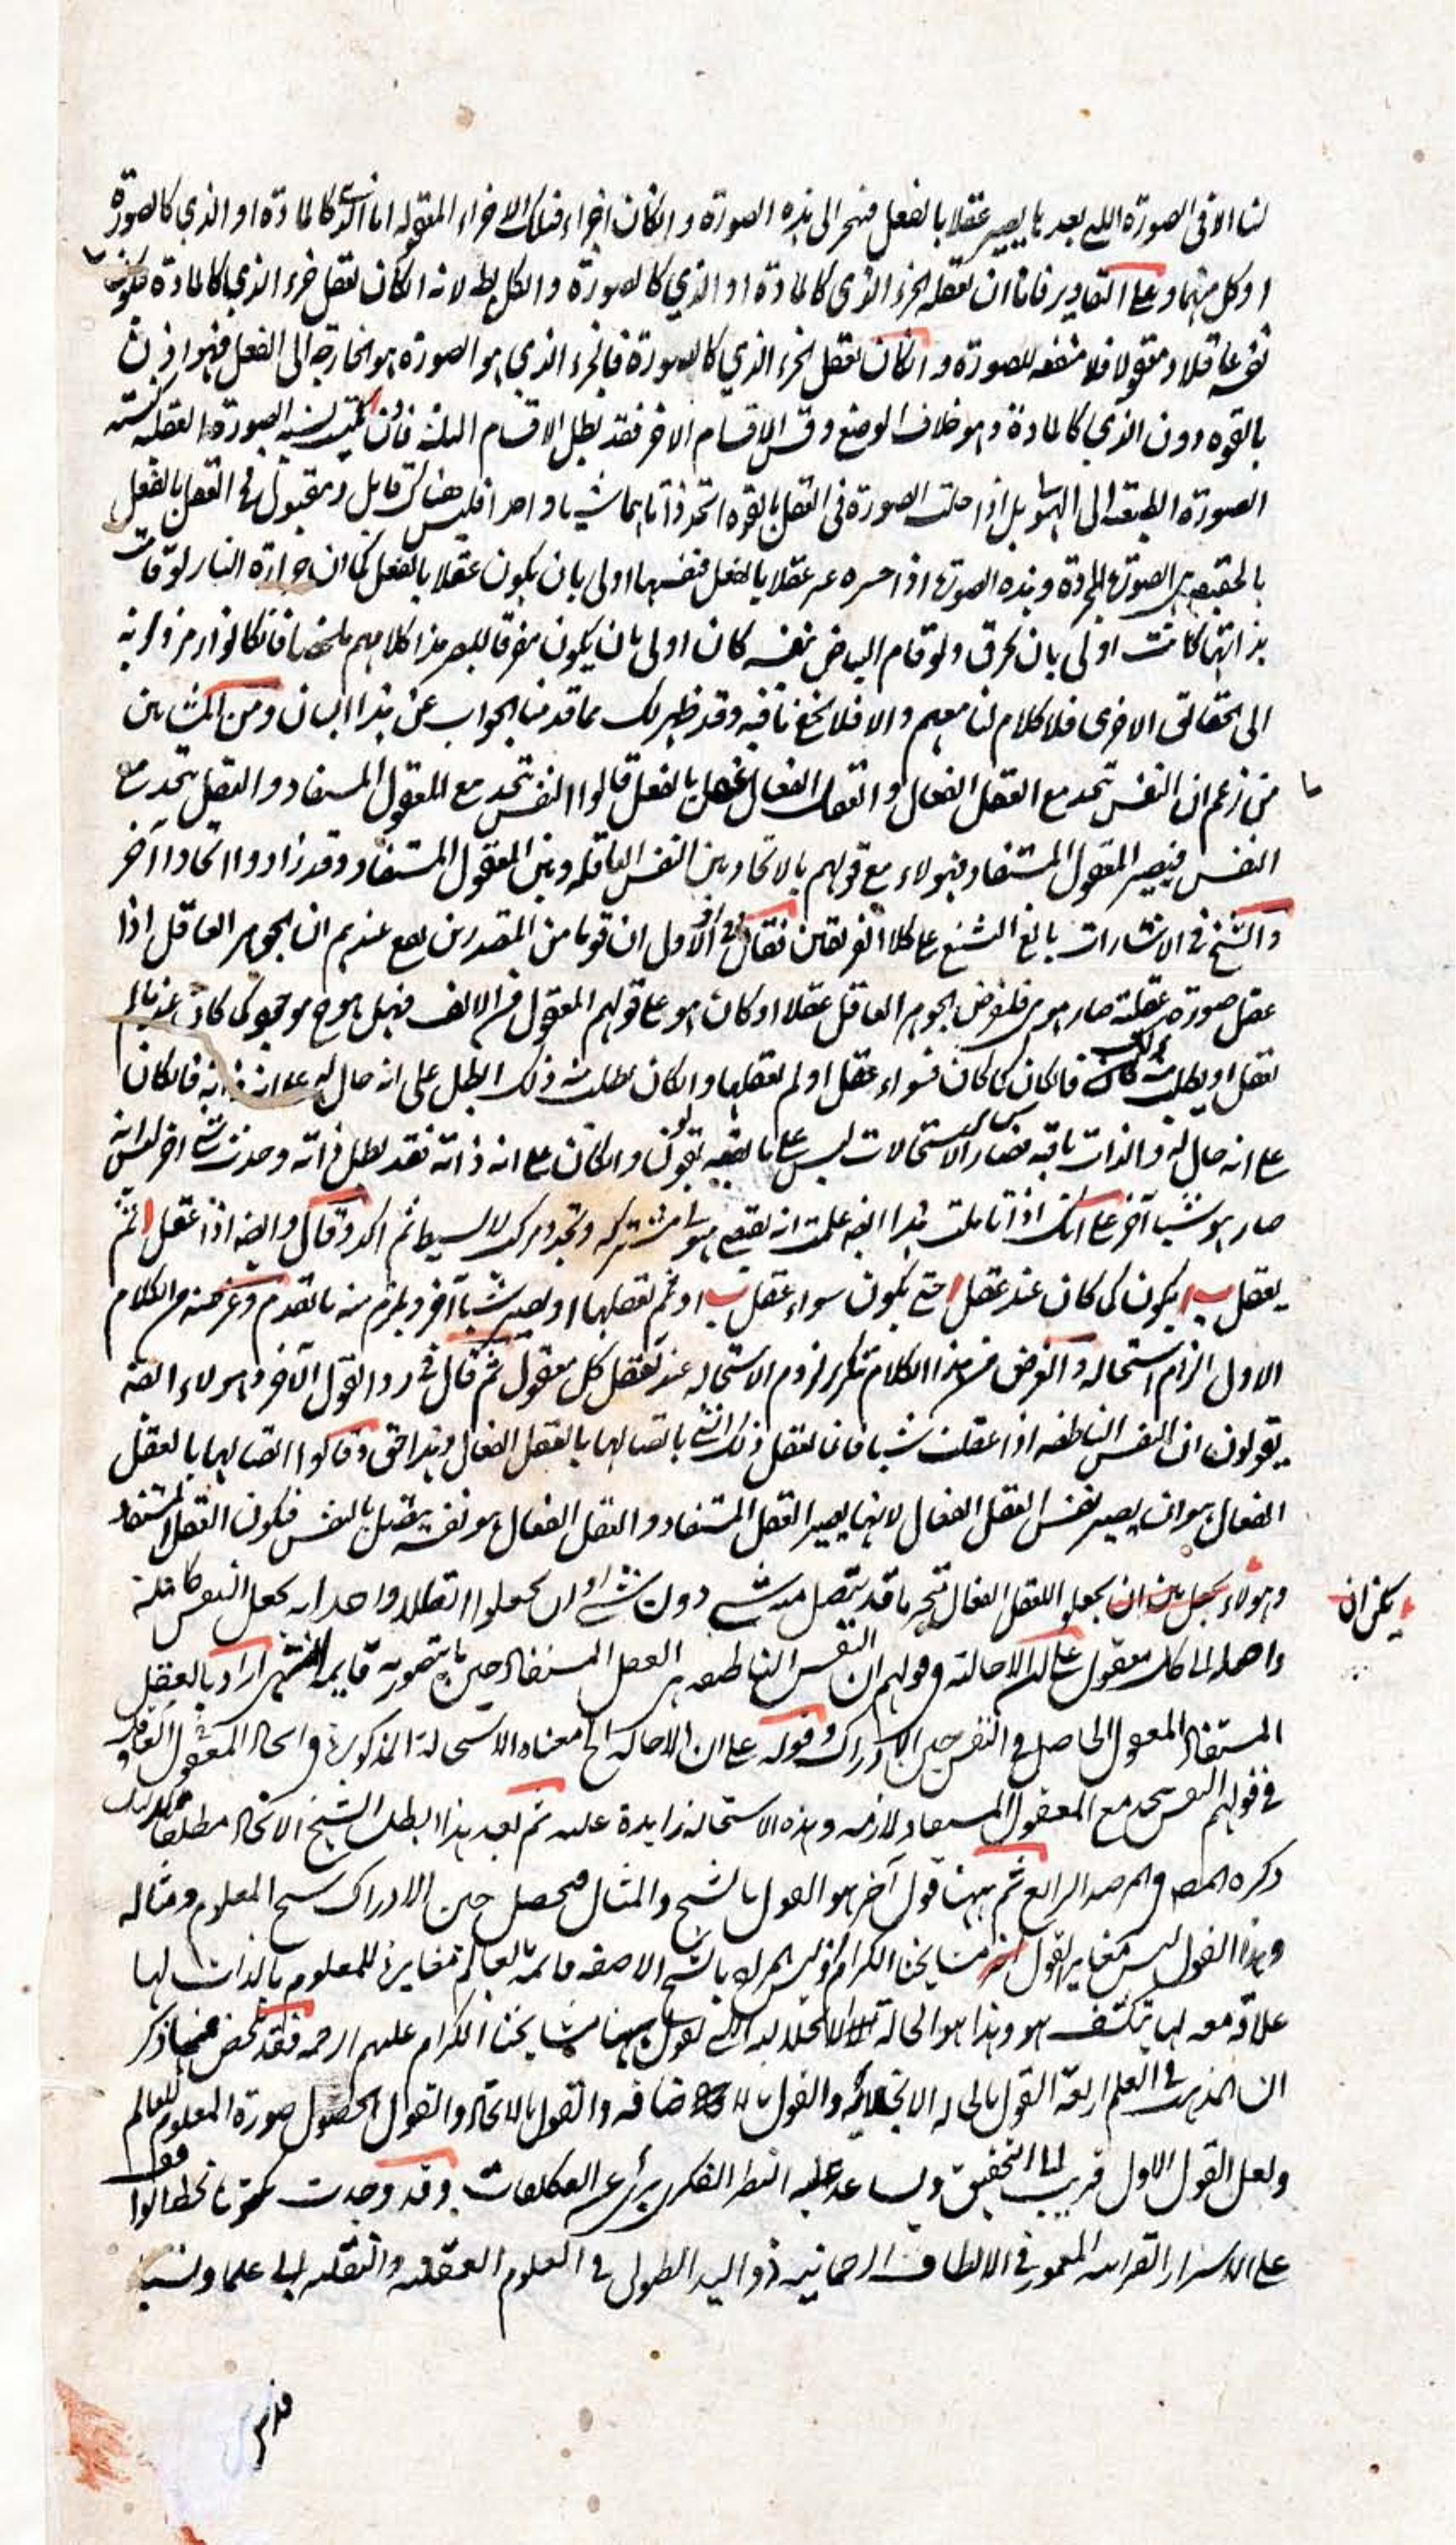 لنا الا فى الصورة التى بعد ما يصير عقلا بالفعل فنجرى الى هذه الصورة و ان كان اجزاء فتلك الاجزاء المعقوله اما الذى كالمادة او الذي كالصورة
او كل منهما و على التقادير فاما ان تعقله الجزء الذى كالمادة او الذي كالصورة و الكل بط لانه ان كان تعقل جزء الذي كالمادة فيكون
نفسه عاقلا و معقولا فلا منفعه للصورة و ان كان تعقل الجزء الذي كالصورة فالجزء الذي هو الصورة هو الخارج الى الفعل فهو اذن
بالقوه دون الذي كالمادة و هو خلاف الوضع و قس الاقسام الاخر فقد بطل الاقسام الثلثة فاذن ليست نسبه الصورة العقليه نسبته
الصورة الطبيعه الى الهيولى بل اذا حلت الصورة فى العقل بالقوه اتحد ذاتاهما شيئا واحدا فليس هناك قابل و مقبول فى العقل بالفعل
بالحقيقه هى الصورة المجردة و هذه الصورة اذا غيره عقلا بالفعل فنفسها اولى بان يكون عقلا بالفعل كما ان حرارة النار لو قامت
بذاتها كانت اولى بان تحرق و لو قام البياض بنفسه كان اولى بان يكون مفرقا للبصر هذا كلامهم ملخصا فان كانوا رمزوا به
الى حقائق الاخرى فلا كلام لنا معهم و الا فلا يخفى ما فيه و قد ظهر لك مما قدمنا الجواب عن هذا البيان و من المشائين
من زعم ان النفس تتحد مع العقل الفعال و العقل الفعال بالفعل قالوا النفس تتحد مع المعقول المستفاد و العقل يتحد مع
النفس فيصير المعقول المستفاد فهولاء مع قولهم بالاتحاد بين النفس العاقله و بين المعقول المستفاد و قد زادوا اتحادا آخر
و الشيخ فى الاشارات بالغ التشنيع على كلا الفريقين فقال فى الاول ان قوما من المتصدرين يقع عندهم ان الجوهر العاقل اذا
عقل صورة عقلية صار هو هى فلنفرض الجوهر العاقل عقل ا و كان هو على قولهم المعقول من الالف فهل هو ح موجود كما كان عند ما لم
تعقل او بطل منه ذلك فان كان كما كان فسواء عقل ا و لم يعقلها و ان كان بطل منه ذلك ابطل على انه حال له او على انه ذاته فان كان
على انه حال له و الذات باقيه فهو كسائر الاستحالات ليس على ما يقولون و ان كان على انه ذاته فقد بطل ذاته و حدث شئ اخر ليس انه
صار هو شيئا آخر على انك اذا تاملت هذا ايضا علمت انه يقتضى هيولى مشتركه و تجدد مركب لا بسيط ثم اكد و قال و ايضا اذا عقل ا ثم
يعقل ب ايكون كما كان عند عقل ا حتى يكون سواء عقل ب او لم تعقلها او يصير شيئا آخر و يلزم منه ما تقدم و غرضه من الكلام
الاول الزام استحاله و الغرض من هذا الكلام تكرير لزوم الاستحاله عند تعقل كل معقول ثم قال فى رد القول الآخر و هولاء ايضا
يقولون ان النفس الناطقه اذا عقلت شيئا فانما تعقل ذلك الشئ باتصالها بالعقل الفعال و هذا حق و قالوا اتصالها بالعقل
الفعال هو ان يصير نفس العقل الفعال لانها يصير العقل المستفاد و العقل الفعال هو نفسه يتصل بالنفس فيكون العقل المستفاد
و هولاء يمكن ان يجعلوا العقل الفعال متجزيا قد يتصل منه شئ دون شئ او ان يجعلوا اتصالا واحدا به يجعل النفس كاملة
واصله الى كل معقول على ان الاحالة فى قولهم ان النفس الناطقه هى العقل المستفاد حين ما يتصور به قايمه اراد بالعقل
المستفاد المعقول الحاصل فى النفس حين الادراك و قوله على ان الاحاله الخ معناه الاستحالة المذكورة فى اتحاد المعقول العاقل
فى قولهم النفس تتحد مع المعقول المستفاد لازمه و هذه الاستحالة زايدة عليه ثم بعد هذا ابطل الشيخ الاتحاد مطلقا
ذكره المص فى المرصد الرابع ثم ههنا قول آخر هو القول بالشبح و المثال فيحصل حين الادراك شبح المعلوم و مثاله
و هذا القول ليس مغاير لقول مشايخنا الكرام اذ ليس المراد بالشبح الا صفه قائمه بالعالم مغايرة للمعلوم بالذات لها
علاقه معه بها ينكشف هو و هذا هو الحالة الانجلائيه التى يقول بها مشايخنا الكرام عليهم الرحمه فقد تلخص مما ذكر
ان المذاهب فى العلم اربعة القول بالحاله الانجلائيه و القول بالاضافه و القول بالاتحاد و القول بحصول صورة المعلوم للعالم
و لعل القول الاول قريب الى التحقيق و يساعد عليه النظر الفكرى و قد وجدت
على الاسرار القرآنيه المغمور فى الالطاف الرحمانيه ذو اليد الطولى فى العلوم العقليه و النقليه ابى علما و نسبا
يمكن ان